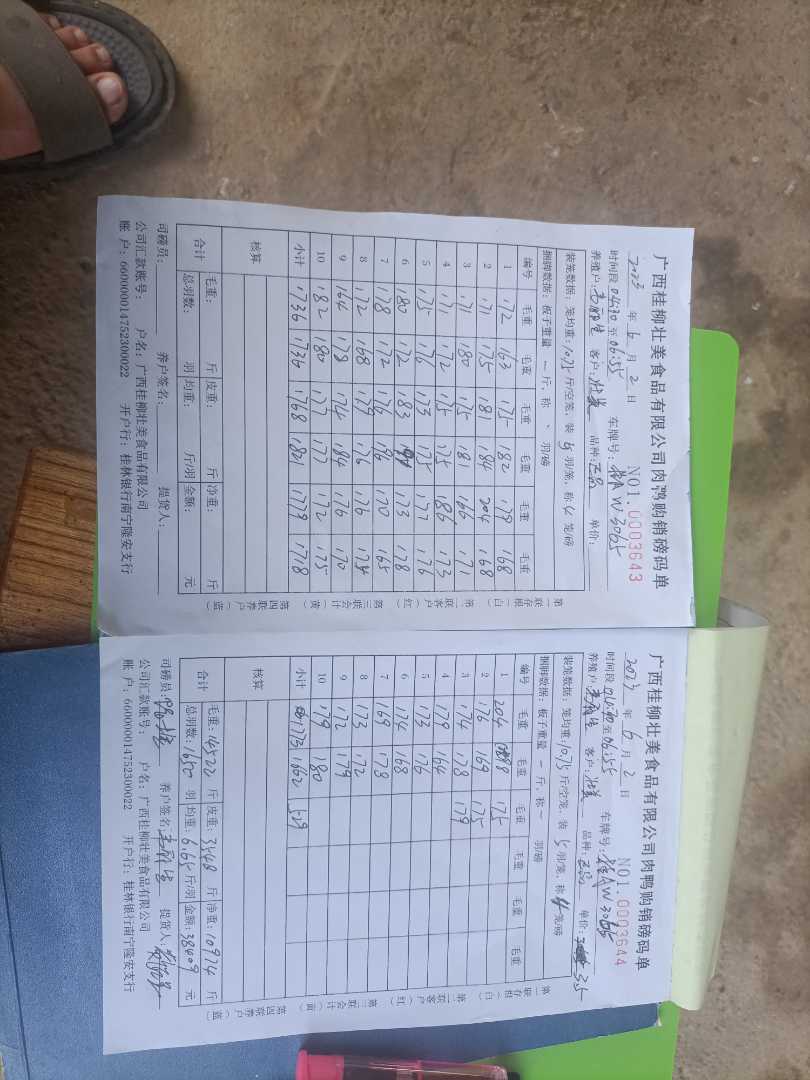 广西桂柳壮美食品有限公司肉鸭购销磅码单
NO1.0003643
2023 年 6 月 2 日
时间段 04:30 至 06:55 车牌号: 桂AW3065
养殖户: 客户: 品种: 正品 单价:
装笼数据: 笼均重: 10.75 斤/空笼, 装 5 羽/笼, 称 4 笼/磅
捆脚数据: 板子重量 一 斤, 称 、 羽/磅
编号 毛重 毛重 毛重 毛重 毛重 毛重
1 172 163 175 182 179 168
2 171 175 181 184 204 168
3 171 180 175 181 166 171
4 171 172 175 175 186 173
5 175 176 173 175 177 176
6 180 172 183 173 178
7 178 172 176 186 170 165
8 172 168 179 176 176 174
9 164 178 174 184 176 170
10 182 180 177 177 172 175
小计 1736 1736 1768 1821 1779 1718
核算
合计 毛重: 斤 皮重: 斤 净重: 斤
总羽数: 羽 均重: 斤/羽 金额: 元
司磅员: 养户签名: 提货人:
公司汇款账号: 户名: 广西桂柳壮美食品有限公司
账 户: 660000014752300022 开户行: 桂林银行南宁隆安支行
第一联存根(白) 第二联客户(红) 第三联会计(黄) 第四联养户(蓝)
广西桂柳壮美食品有限公司肉鸭购销磅码单
NO1.0003644
2023 年 6 月 2 日
时间段 04:30 至 06:55 车牌号: 桂AW3065
养殖户: 客户: 品种: 正品 单价: 3.5
装笼数据: 笼均重: 10.75 斤/空笼, 装 5 羽/笼, 称 4 笼/磅
捆脚数据: 板子重量 一 斤, 称 一 羽/磅
编号 毛重 毛重 毛重 毛重 毛重 毛重
1 204 98 175
2 176 169 175
3 174 178 179
4 179 164
5 173 176
6 174 168
7 169 178
8 173 172
9 172 179
10 179 180
小计 1773 1662 529
核算
合计 毛重: 14522 斤 皮重: 3548 斤 净重: 10974 斤
总羽数: 1650 羽 均重: 6.65 斤/羽 金额: 38409 元
司磅员: 养户签名: 提货人:
公司汇款账号: 户名: 广西桂柳壮美食品有限公司
账 户: 660000014752300022 开户行: 桂林银行南宁隆安支行
第一联存根(白) 第二联客户(红) 第三联会计(黄) 第四联养户(蓝)